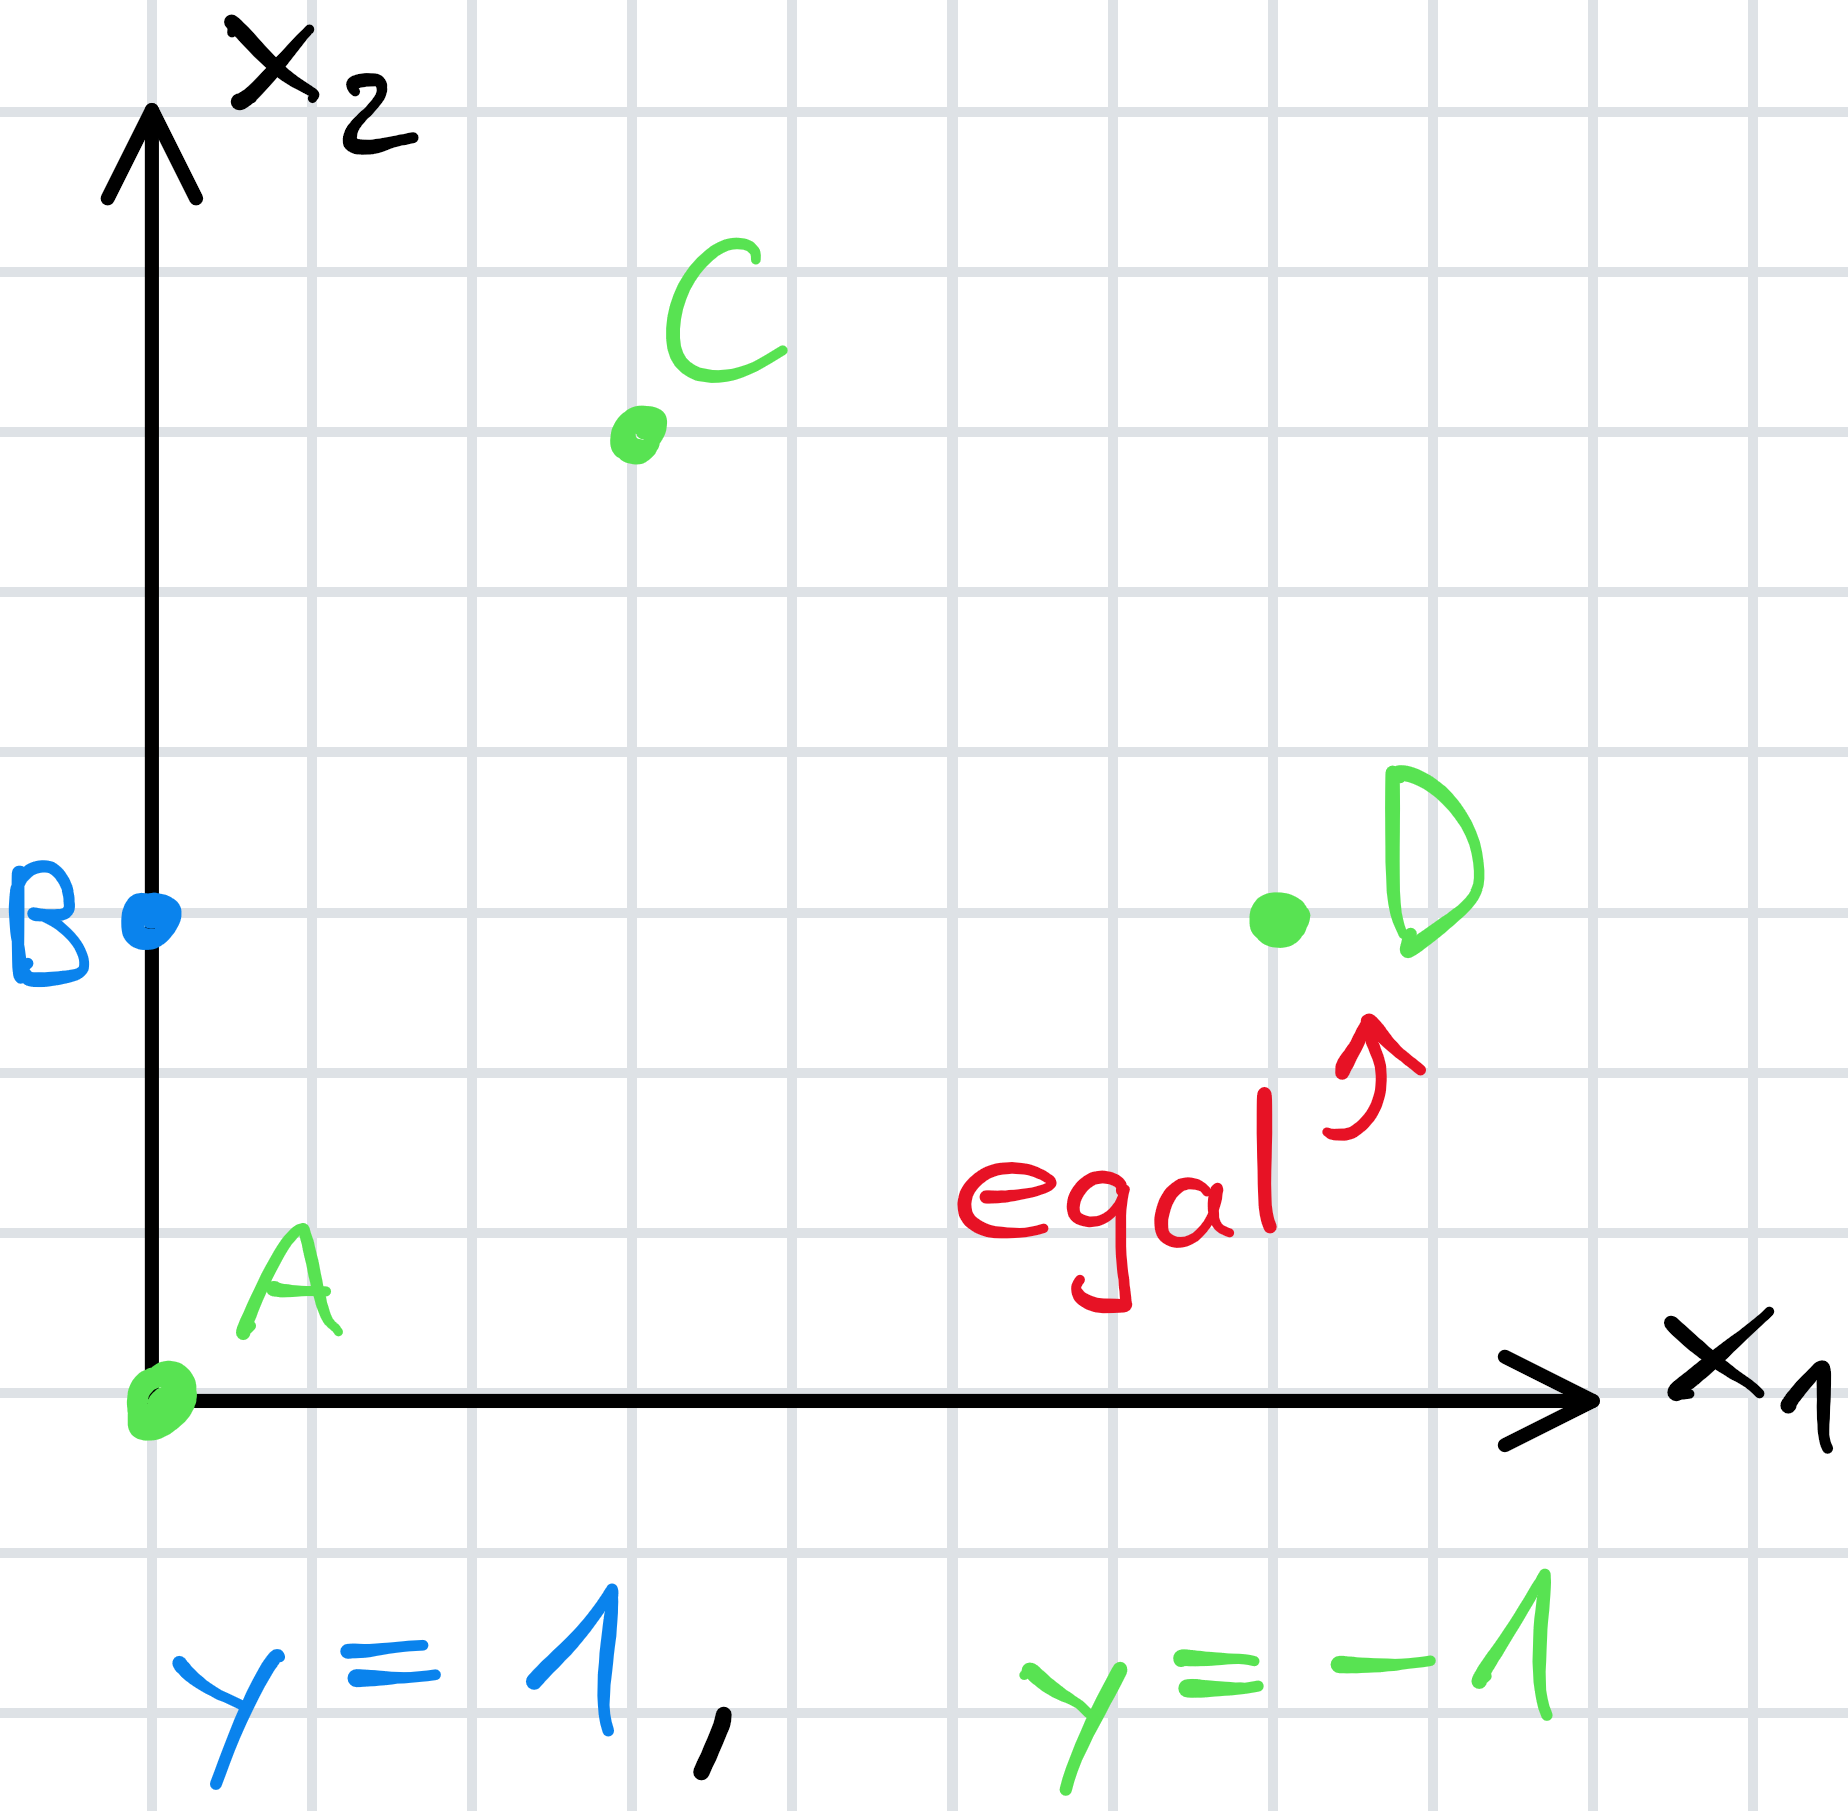 x2
C
B
D
egal
A
x1
y = 1 , y = -1